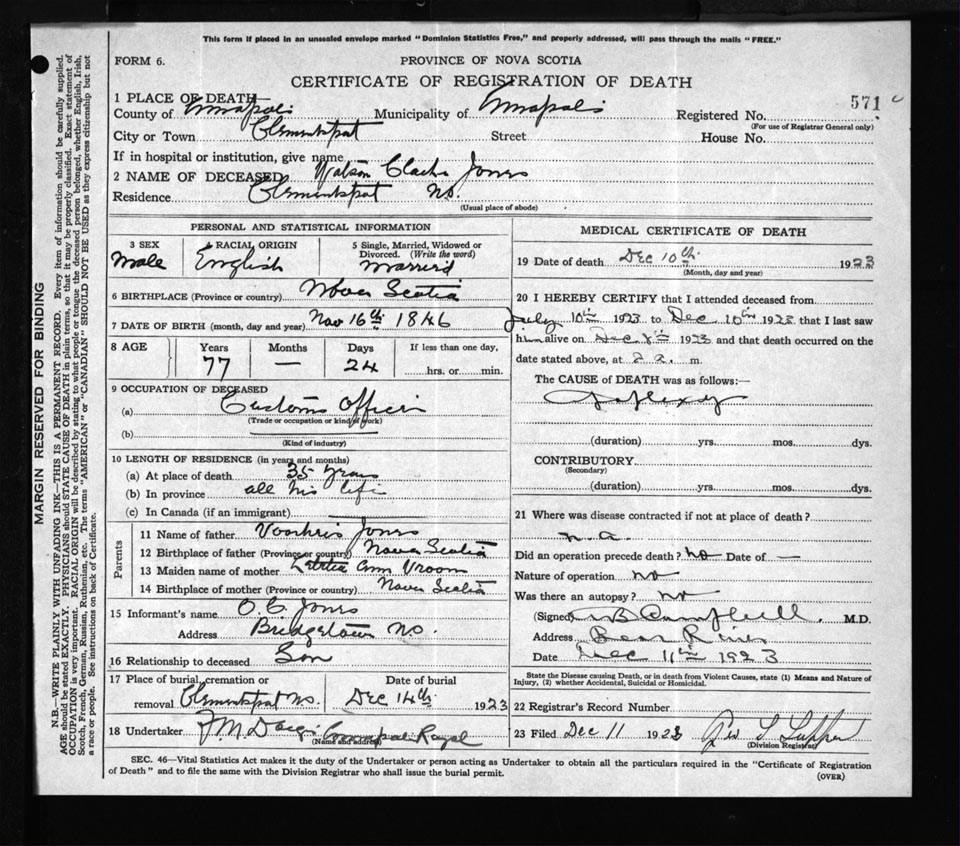 This form if placed in an unsealed envelope marked "Dominion Statistics Free," and properly addressed, will pass through the mails "FREE."
FORM 6. PROVINCE OF NOVA SCOTIA
CERTIFICATE OF REGISTRATION OF DEATH
571
1 PLACE OF DEATH—
County of Annapolis Municipality of Annapolis Registered No.
(For use of Registrar General only)
City or Town Clementsport Street House No.
If in hospital or institution, give name
2 NAME OF DECEASED Watson Clarke Jones
Residence Clementsport N.S.
(Usual place of abode)
PERSONAL AND STATISTICAL INFORMATION
3 SEX Male
RACIAL ORIGIN English
5 Single, Married, Widowed or Divorced. (Write the word) Married
6 BIRTHPLACE (Province or country) Nova Scotia
7 DATE OF BIRTH (month, day and year) Nov 16th 1846
8 AGE Years Months Days If less than one day,
77 — 24 hrs. or min.
9 OCCUPATION OF DECEASED
(a) Customs Officer
(Trade or occupation or kind of work)
(b)
(Kind of industry)
10 LENGTH OF RESIDENCE (in years and months)
(a) At place of death 35 years
(b) In province all his life
(c) In Canada (if an immigrant)
Parents
11 Name of father Voorheis Jones
12 Birthplace of father (Province or country) Nova Scotia
13 Maiden name of mother Letitia Ann Vroom
14 Birthplace of mother (Province or country) Nova Scotia
15 Informant's name O. C. Jones
Address Bridgetown N.S.
16 Relationship to deceased Son
17 Place of burial, cremation or removal Clementsport N.S. Date of burial Dec 14th 1923
18 Undertaker F. M. Annapolis Royal
(Name and address)
MEDICAL CERTIFICATE OF DEATH
19 Date of death Dec 10th 1923
(Month, day and year)
20 I HEREBY CERTIFY that I attended deceased from
July 10th 1923 to Dec 10th 1923 that I last saw
him alive on Dec 1923 and that death occurred on the
date stated above, at 2 a. m.
The CAUSE of DEATH was as follows:—
Apoplexy
(duration) yrs. mos. dys.
CONTRIBUTORY
(Secondary)
(duration) yrs. mos. dys.
21 Where was disease contracted if not at place of death?
n.a.
Did an operation precede death? no Date of —
Nature of operation no
Was there an autopsy? no
(Signed) Campbell. M.D.
Address Bear River
Date Dec 11th 1923
State the Disease causing Death, or in death from Violent Causes, state (1) Means and Nature of
Injury, (2) whether Accidental, Suicidal or Homicidal.
22 Registrar's Record Number
23 Filed Dec 11 1923 Geo
(Division Registrar)
SEC. 46—Vital Statistics Act makes it the duty of the Undertaker or person acting as Undertaker to obtain all the particulars required in the "Certificate of Registration
of Death" and to file the same with the Division Registrar who shall issue the burial permit.
(OVER)
MARGIN RESERVED FOR BINDING
N.B.—WRITE PLAINLY WITH UNFADING INK—THIS IS A PERMANENT RECORD. Every item of information should be carefully supplied.
AGE should be stated EXACTLY. PHYSICIANS should STATE CAUSE OF DEATH in plain terms, so that it may be properly classified. Exact statement of
OCCUPATION is very important. RACIAL ORIGIN will be described by stating to what people or tongue the deceased person belonged, whether English, Irish,
Scotch, French, German, Russian, Ruthenian, etc. The terms "AMERICAN" or "CANADIAN" SHOULD NOT BE USED as they express citizenship but not
a race or people. See instructions on back of Certificate.